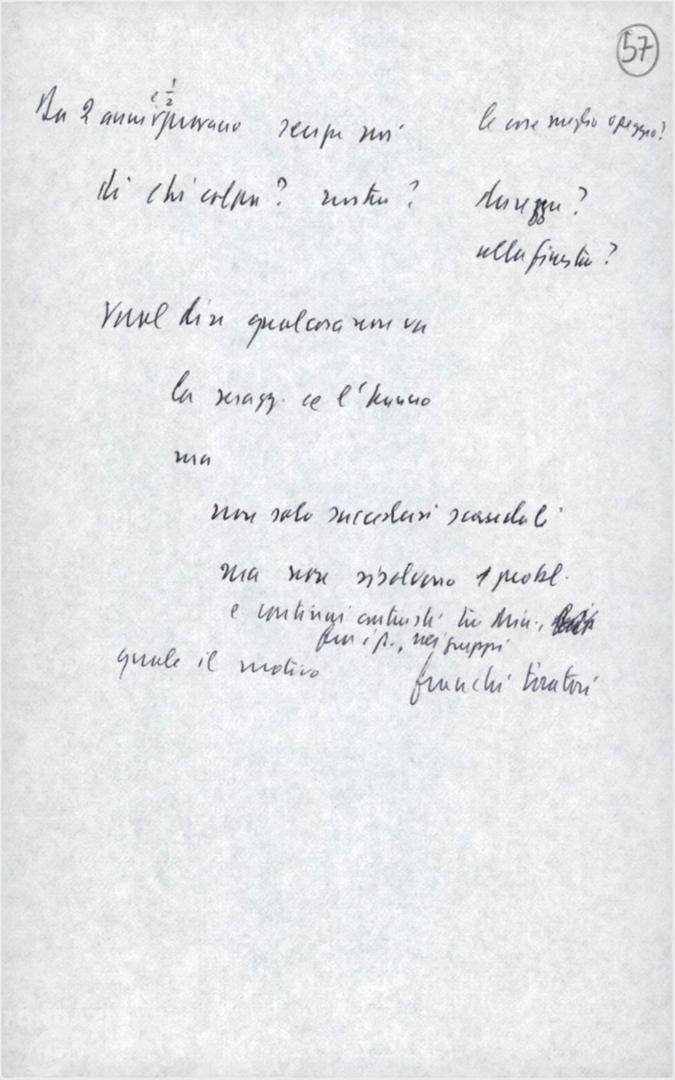 57
Da 2 anni e 1/2 governano senza noi le cose meglio o peggio?
di chi colpa? nostra? chi regge?
alla finestra?
Vuol dire qualcosa non va
la magg. ce l'hanno
ma
non solo succedersi scandali
ma non risolvono 1 probl.
e continui contrasti tra Min.,
fra i p., nei gruppi
quale il motivo franchi tiratori